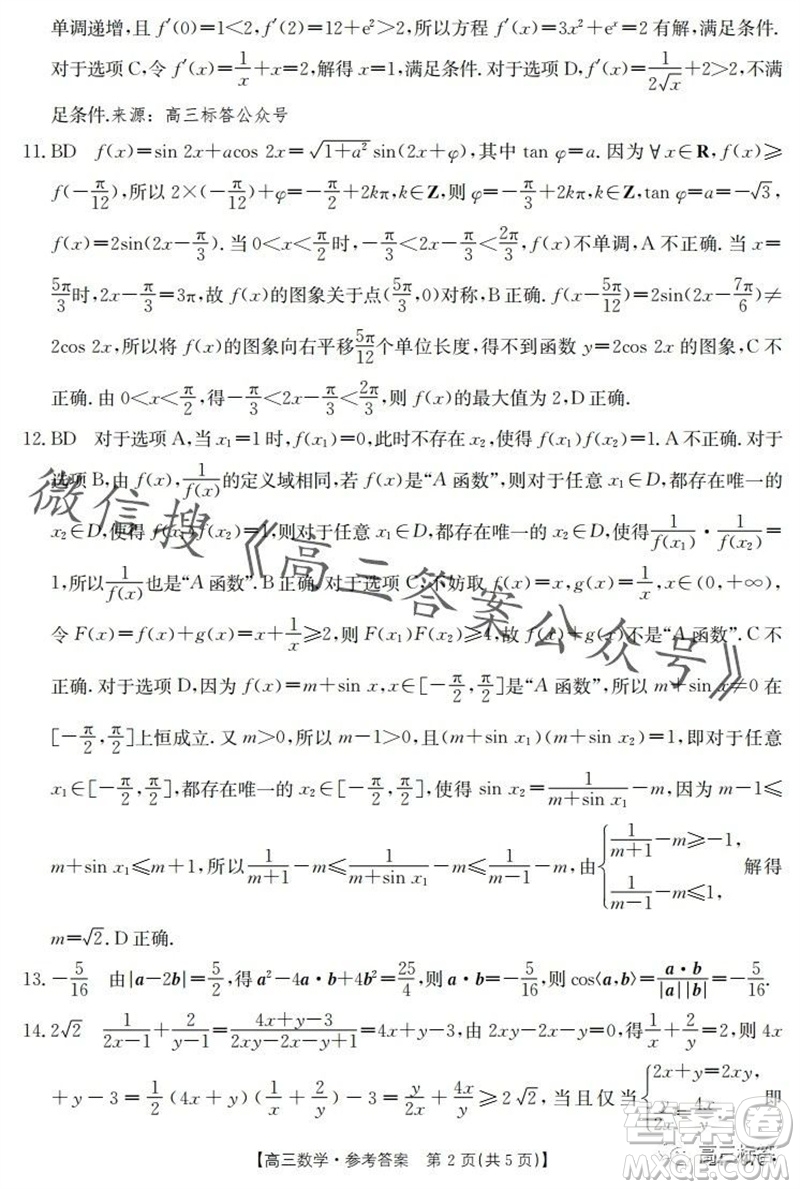 单调递增,且 f′(0)=1<2,f′(2)=12+e²>2,所以方程 f′(x)=3x²+eˣ=2 有解,满足条件.
对于选项 C,令 f′(x)=1/x+x=2,解得 x=1,满足条件. 对于选项 D,f′(x)=1/(2√x)+2>2,不满
足条件.来源：高三标答公众号
11. BD f(x)=sin 2x+acos 2x=√(1+a²) sin(2x+φ),其中 tan φ=a. 因为∀x∈R,f(x)≥
f(-π/12),所以 2×(-π/12)+φ=-π/2+2kπ,k∈Z,则 φ=-π/3+2kπ,k∈Z,tan φ=a=-√3,
f(x)=2sin(2x-π/3). 当 0<x<π/2时,-π/3<2x-π/3<2π/3,f(x)不单调,A 不正确. 当 x=
5π/3时,2x-π/3=3π,故 f(x)的图象关于点(5π/3,0)对称,B 正确. f(x-5π/12)=2sin(2x-7π/6)≠
2cos 2x,所以将 f(x)的图象向右平移5π/12个单位长度,得不到函数 y=2cos 2x 的图象,C 不
正确. 由 0<x<π/2,得-π/3<2x-π/3<2π/3,所以 f(x)的最大值为 2,D 正确.
12. BD 对于选项 A,当 x₁=1 时,f(x₁)=0,此时不存在 x₂,使得 f(x₁)f(x₂)=1. A 不正确. 对于
选项 B,由 f(x),1/f(x)的定义域相同,若 f(x)是“A 函数”,则对于任意 x₁∈D,都存在唯一的
x₂∈D,使得 f(x₁)f(x₂)=1,则对于任意 x₁∈D,都存在唯一的 x₂∈D,使得1/f(x₁)·1/f(x₂)=
1,所以1/f(x)也是“A 函数”. B 正确. 对于选项 C,不妨取 f(x)=x,g(x)=1/x,x∈(0,+∞),
令 F(x)=f(x)+g(x)=x+1/x≥2,则 F(x₁)F(x₂)≥4,故 f(x)+g(x)不是“A 函数”. C 不
正确. 对于选项 D,因为 f(x)=m+sin x,x∈[-π/2,π/2]是“A 函数”,所以 m+sin x≠0 在
[-π/2,π/2]上恒成立. 又 m>0,所以 m-1>0,且(m+sin x₁)(m+sin x₂)=1,即对于任意
x₁∈[-π/2,π/2],都存在唯一的 x₂∈[-π/2,π/2],使得 sin x₂=1/(m+sin x₁)-m,因为 m-1≤
m+sin x₁≤m+1,所以1/(m+1)-m≤1/(m+sin x₁)-m≤1/(m-1)-m,由{1/(m+1)-m≥-1, 1/(m-1)-m≤1, 解得
m=√2. D 正确.
13. -5/16 由|a-2b|=5/2,得 a²-4a·b+4b²=25/4,则 a·b=-5/16,则 cos⟨a,b⟩=a·b/(|a||b|)=-5/16.
14. 2√2 1/(2x-1)+2/(y-1)=(4x+y-3)/(2xy-2x-y+1)=4x+y-3,由 2xy-2x-y=0,得1/x+2/y=2,则 4x
+y-3=1/2(4x+y)(1/x+2/y)-3=y/2x+4x/y≥2√2,当且仅当{2x+y=2xy, y/2x=4x/y, 即
【高三数学·参考答案 第 2 页(共 5 页)】
微信搜《高三答案公众号》
答案圈
高三标答